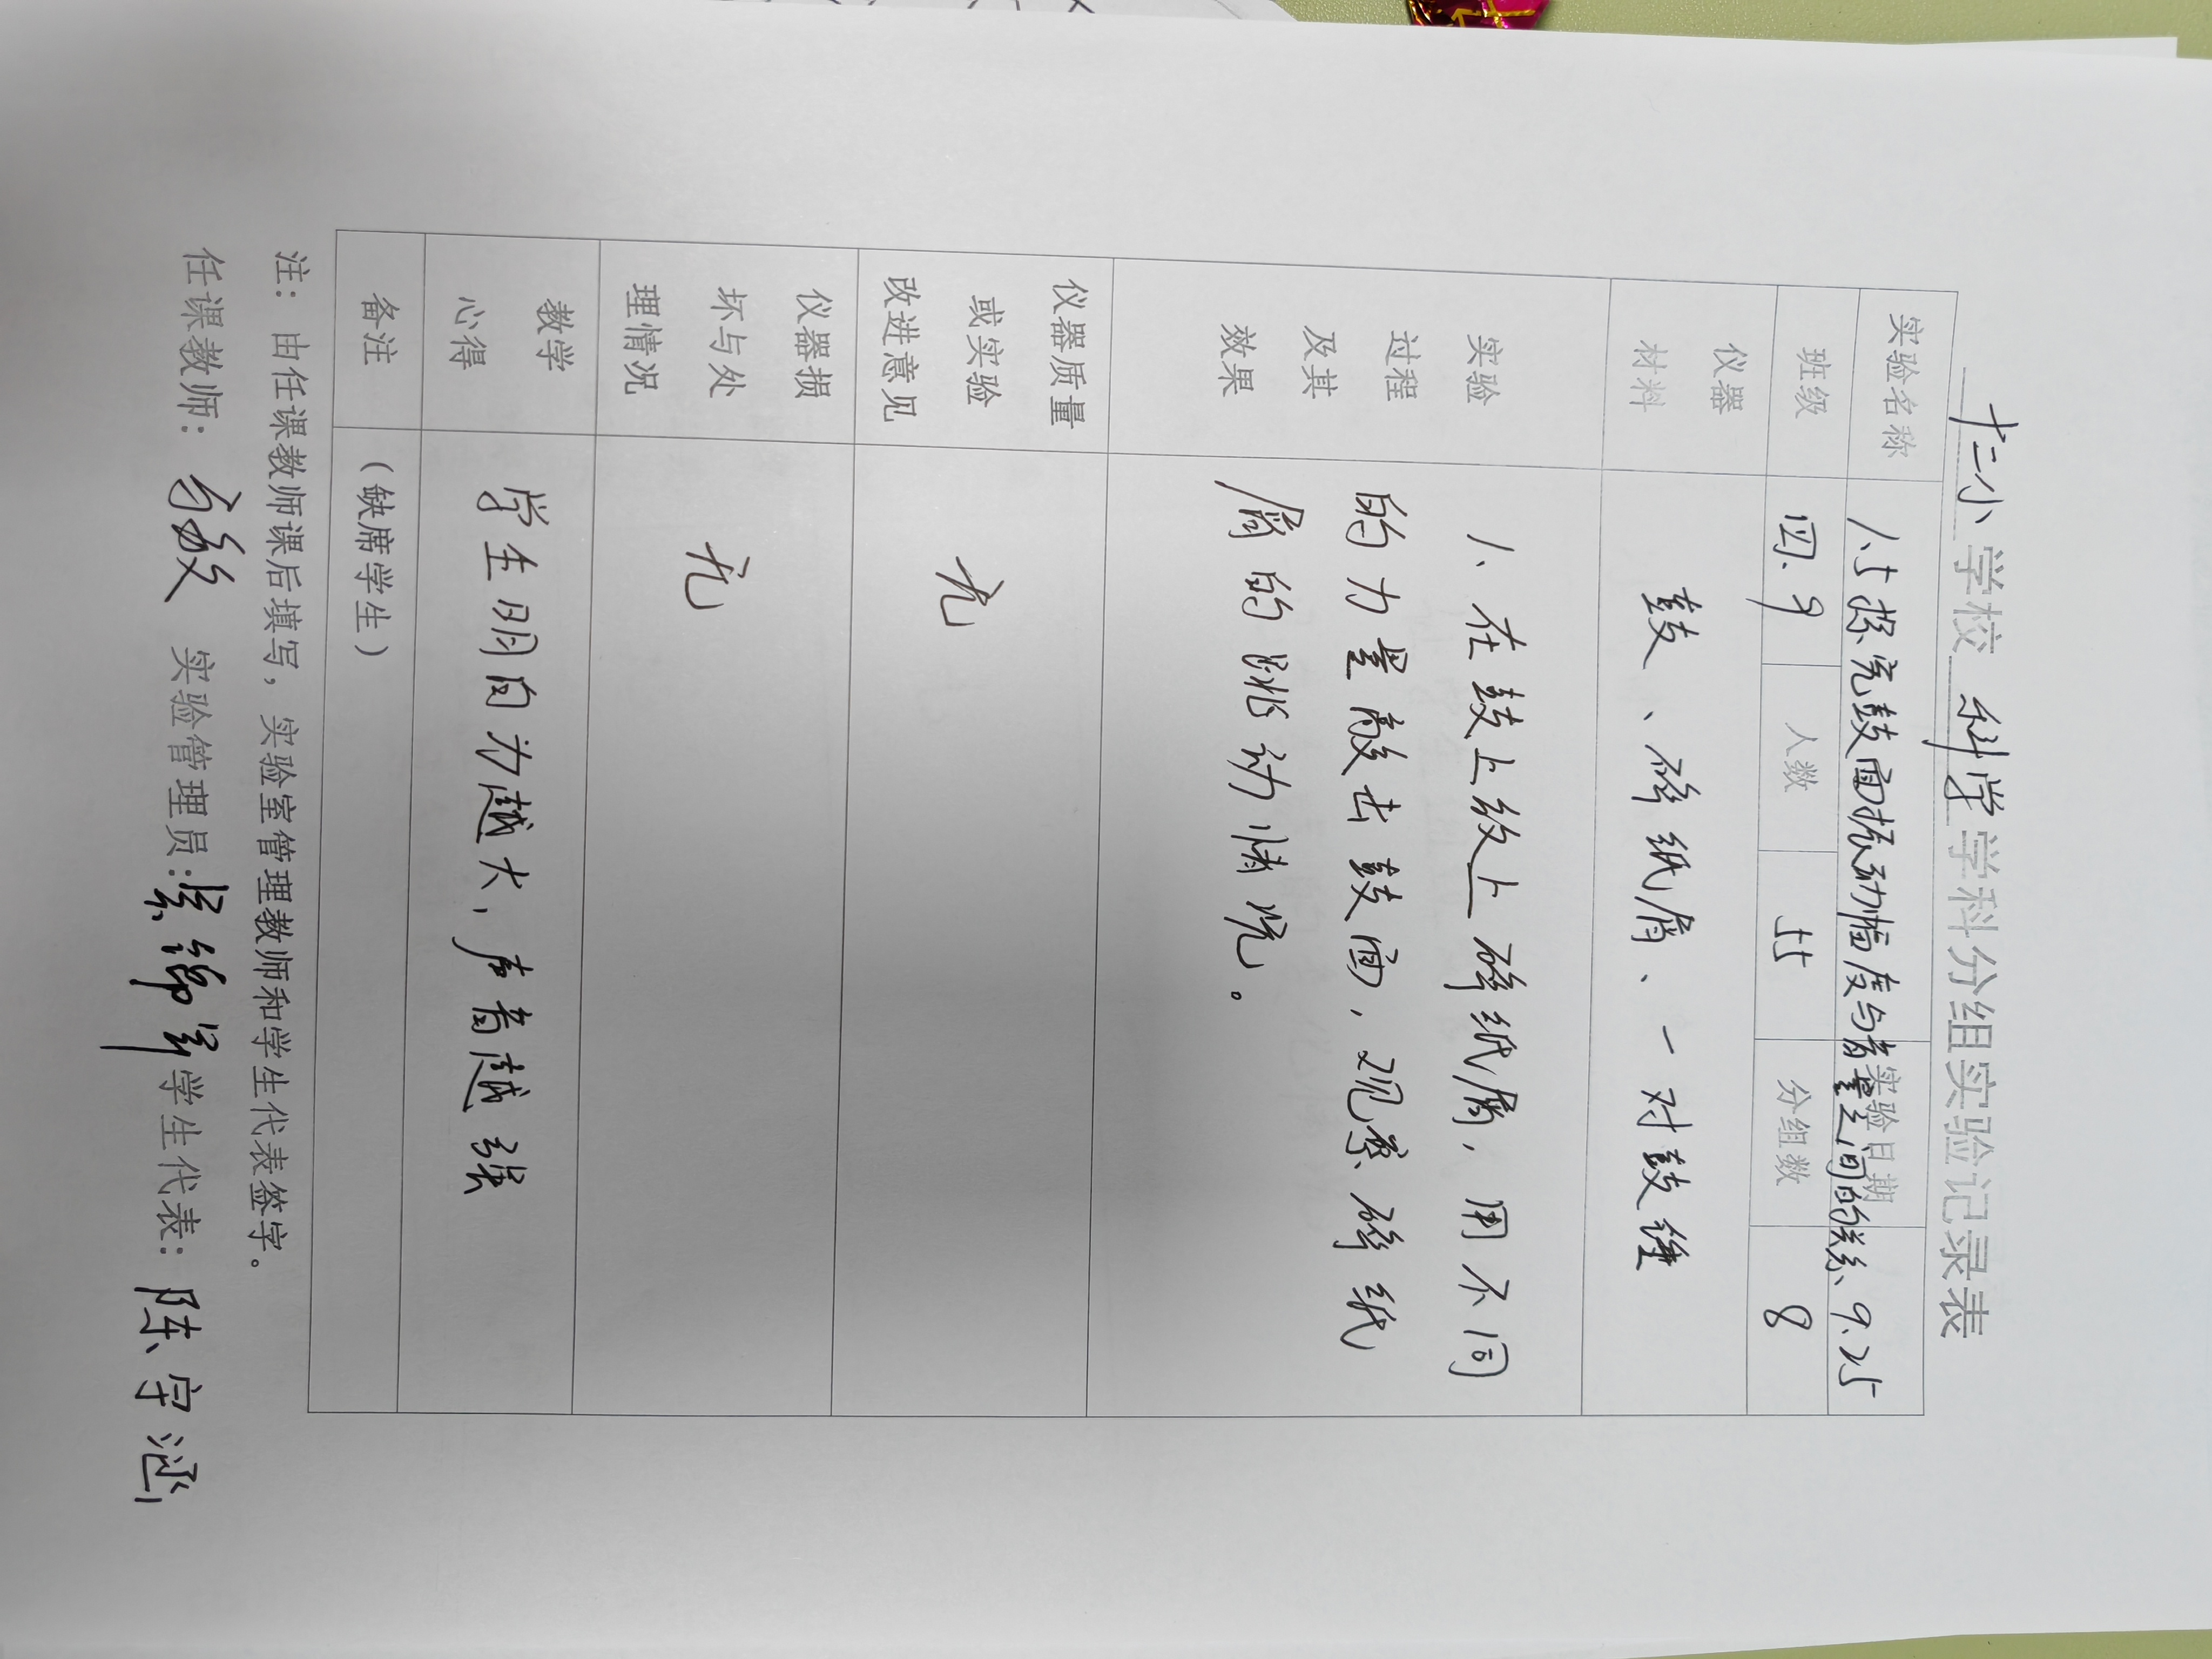 十二小学校 科学 学科分组实验记录表
实验名称 1.5探究鼓面振动幅度与音量之间的关系 实验日期 9.25
班级 四.9 人数 55 分组数 8
仪器
材料
鼓、碎纸屑、一对鼓锤
实验
过程
及其
效果
1、在鼓上放上碎纸屑，用不同
的力量敲击鼓面，观察碎纸
屑的跳动情况。
仪器质量
或实验
改进意见
无
仪器损
坏与处
理情况
无
教学
心得
学生明白力越大，声音越强
备注 （缺席学生）
注：由任课教师课后填写，实验室管理教师和学生代表签字。
任课教师： 实验管理员： 学生代表：陈宇涵